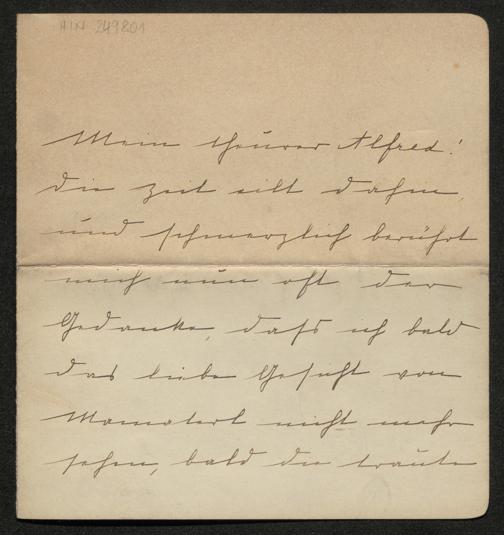 HIN 249801
Mein theurer Alfred!
Die Zeit eilt dahin,
und schmerzlich berührt
mich nun oft der
Gedanke, daß ich bald
das liebe Gesicht von
nicht mehr
sehen, bald die traute